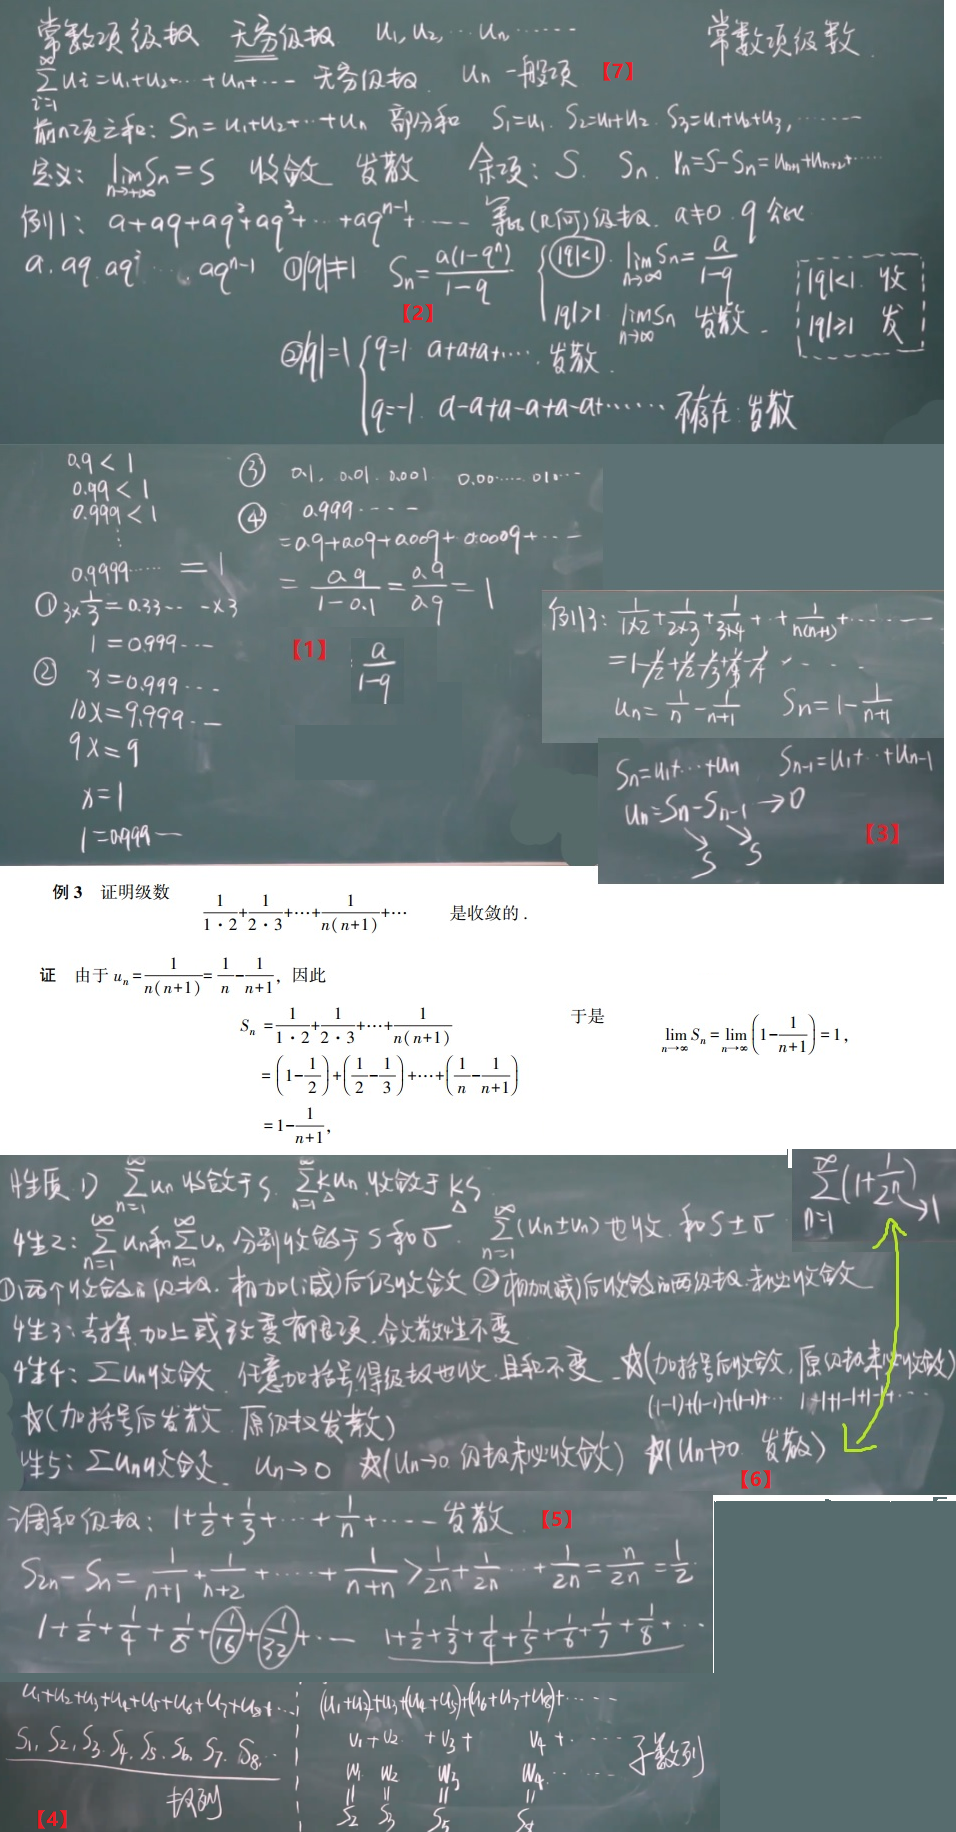 常数项级数 无穷级数 u₁,u₂,⋯un⋯⋯ 常数项级数
∑_{i=1}^{∞} ui=u₁+u₂+⋯+un+⋯ 无穷级数 un 一般项 【7】
前n项之和: Sn=u₁+u₂+⋯+un 部分和 S₁=u₁. S₂=u₁+u₂. S₃=u₁+u₂+u₃,⋯⋯
定义: lim_{n→+∞} Sn=S 收敛 发散 余项: S. Sn. rn=S-Sn=u_{n+1}+u_{n+2}+⋯⋯
例1: a+aq+aq²+aq³+⋯+aq^{n-1}+⋯⋯ 等比(几何)级数. a≠0. q公比
a. aq. aq² ⋯ aq^{n-1} ①|q|≠1 Sn=a(1-qⁿ)/(1-q) { |q|<1. lim_{n→∞} Sn=a/(1-q) |q|<1 收
【2】 |q|>1 lim_{n→∞} Sn 发散. |q|≥1 发
②|q|=1 { q=1 a+a+a+⋯. 发散.
q=-1. a-a+a-a+a-a+⋯⋯ 不存在: 发散
0.9<1 ③ 0.1. 0.01. 0.001. 0.00⋯⋯01⋯
0.99<1
0.999<1 ④ 0.999⋯⋯
⋮ =0.9+0.09+0.009+0.0009+⋯
0.9999⋯⋯ =1
①3×1/3=0.33⋯×3 =0.9/(1-0.1)=0.9/0.9=1
1=0.999⋯ 【1】 a/(1-q)
② x=0.999⋯
10x=9.999⋯
9x=9
x=1
1=0.999⋯
例3: 1/(1×2)+1/(2×3)+1/(3×4)+⋯+1/(n(n+1))+⋯⋯
=1-1/2+1/2-1/3+1/3-1/4⋯⋯
un=1/n-1/(n+1) Sn=1-1/(n+1)
Sn=u₁+⋯+un S_{n-1}=u₁+⋯+u_{n-1}
un=Sn-S_{n-1}→0
S S 【3】
例3 证明级数
1/(1·2)+1/(2·3)+⋯+1/(n(n+1))+⋯ 是收敛的.
证 由于 un=1/(n(n+1))=1/n-1/(n+1), 因此
Sn=1/(1·2)+1/(2·3)+⋯+1/(n(n+1)) 于是 lim_{n→∞} Sn=lim_{n→∞}(1-1/(n+1))=1,
=(1-1/2)+(1/2-1/3)+⋯+(1/n-1/(n+1))
=1-1/(n+1),
性质 1) ∑_{n=1}^{∞} un 收敛于S. ∑_{n=1}^{∞} kun 收敛于kS. ∑_{n=1}^{∞}(1+1/2n)→1
性2: ∑_{n=1}^{∞} un和∑_{n=1}^{∞} vn 分别收敛于S和σ ∑_{n=1}^{∞}(un±vn)也收. 和S±σ
①两个收敛的级数. 相加(减)后仍收敛 ②相加(减)后收敛的两级数未必收敛
性3: 去掉. 加上或改变有限项. 敛散性不变
性4: ∑un收敛. 任意加括号得级数也收. 且和不变 ☆(加括号后收敛. 原级数未必收敛)
(1-1)+(1-1)+(1-1)+⋯ 1-1+1-1+1-1+⋯
☆(加括号后发散 原级数发散)
性5: ∑un收敛. un→0 ☆(un→0 级数未必收敛) ☆(un↛0. 发散)
【6】
调和级数: 1+1/2+1/3+⋯+1/n+⋯⋯发散 【5】
S₂n-Sn=1/(n+1)+1/(n+2)+⋯⋯+1/(n+n)>1/2n+1/2n⋯+1/2n=n/2n=1/2
1+1/2+1/4+1/8+1/16+1/32+⋯ 1+1/2+1/3+1/4+1/5+1/6+1/7+1/8+⋯
u₁+u₂+u₃+u₄+u₅+u₆+u₇+u₈+⋯ (u₁+u₂)+u₃+(u₄+u₅)+(u₆+u₇+u₈)+⋯⋯
S₁, S₂, S₃. S₄. S₅. S₆. S₇. S₈.⋯ v₁+v₂ +v₃+ v₄+⋯⋯ 子数列
数列 w₁ w₂ w₃ w₄⋯⋯
【4】 S₂ S₃ S₅ S₈